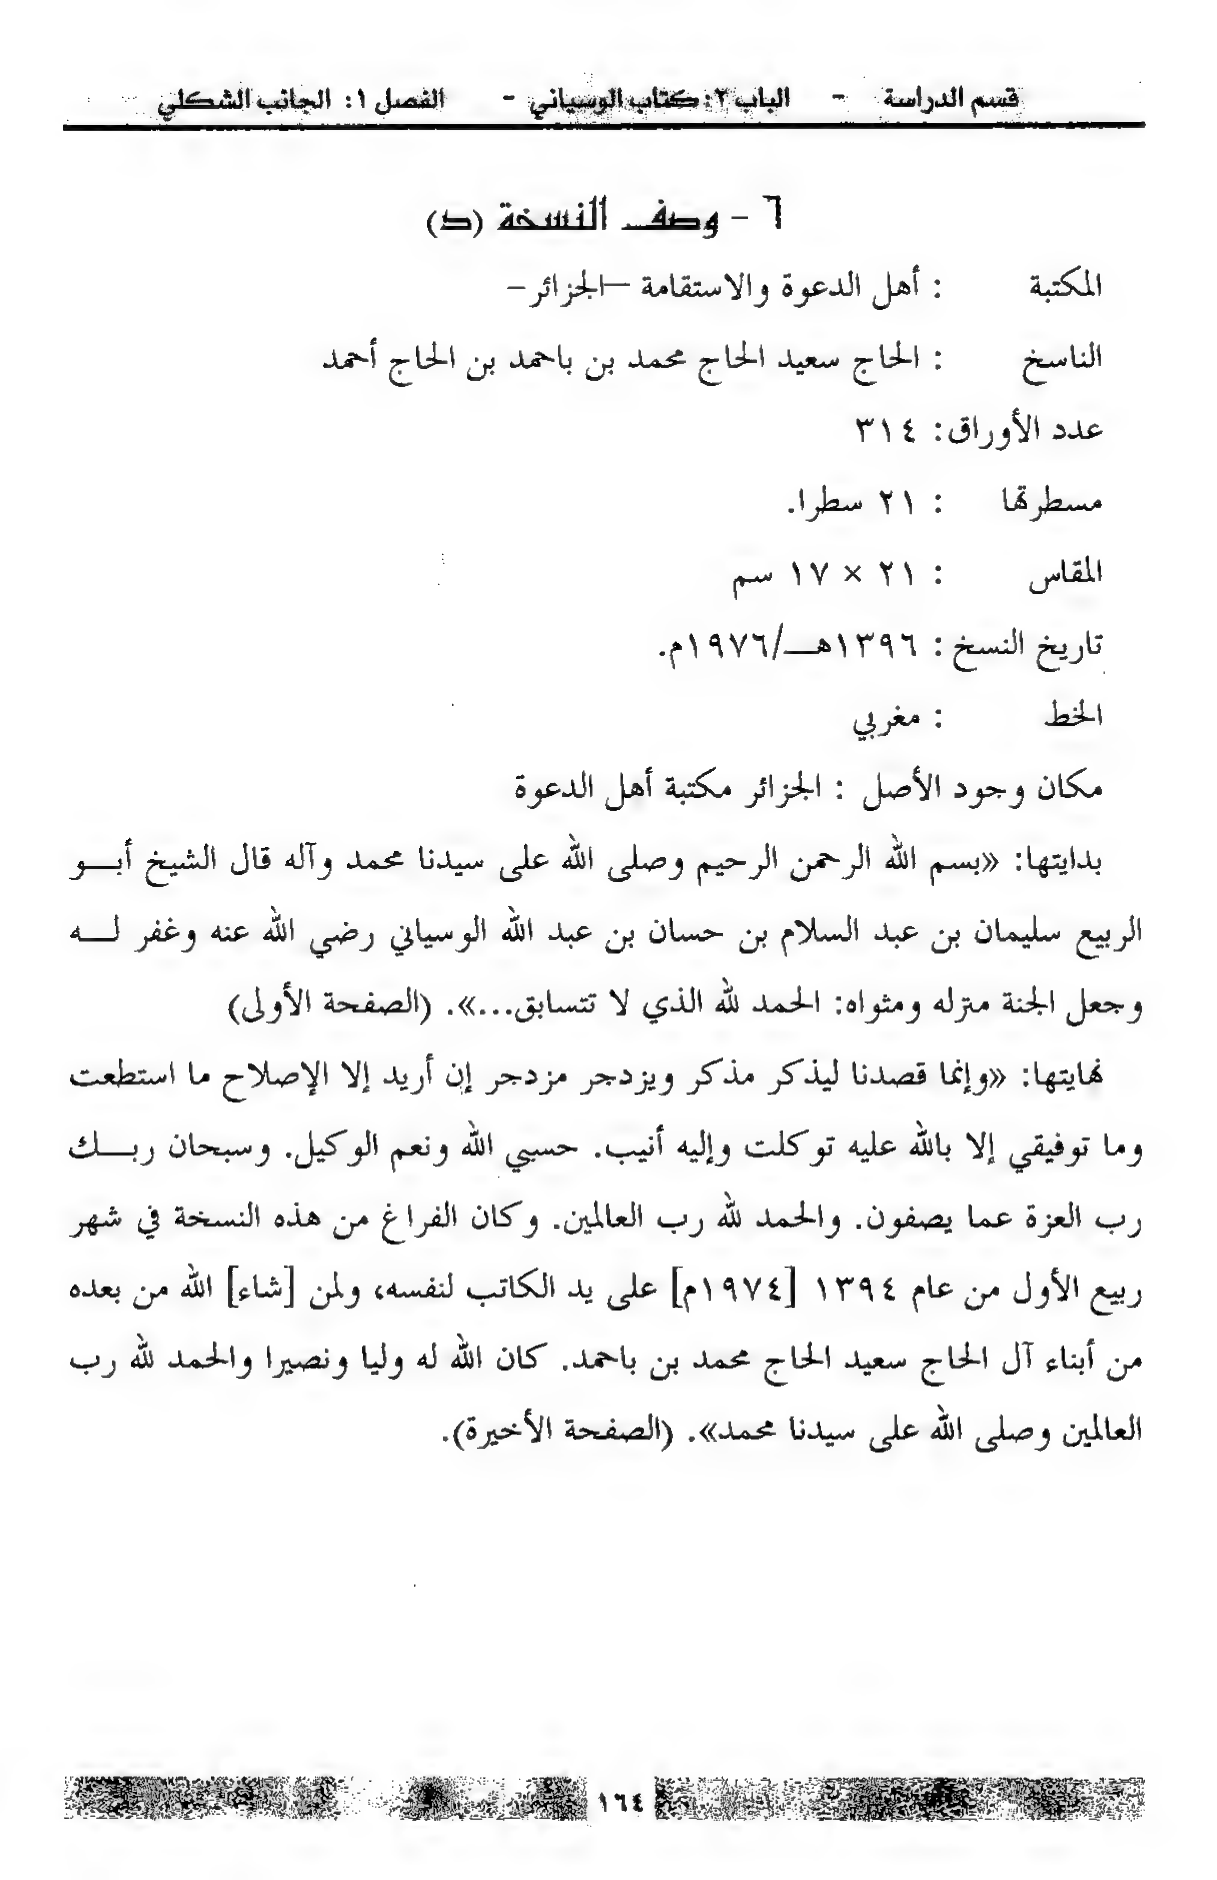 قسم الدراسة - الباب ٢: كتاب الوسياني - الفصل ١: الجانب الشكلي
٦ - وصف النسخة (د)
المكتبة : أهل الدعوة والاستقامة –الجزائر–
الناسخ : الحاج سعيد الحاج محمد بن باحمد بن الحاج أحمد
عدد الأوراق: ٣١٤
مسطرتها : ٢١ سطرا.
المقاس : ٢١ × ١٧ سم
تاريخ النسخ : ١٣٩٦هـ/١٩٧٦م.
الخط : مغربي
مكان وجود الأصل : الجزائر مكتبة أهل الدعوة
بدايتها: «بسم الله الرحمن الرحيم وصلى الله على سيدنا محمد وآله قال الشيخ أبو
الربيع سليمان بن عبد السلام بن حسان بن عبد الله الوسياني رضي الله عنه وغفر له
وجعل الجنة منزله ومثواه: الحمد لله الذي لا تتسابق...». (الصفحة الأولى)
نهايتها: «وإنما قصدنا ليذكر مذكر ويزدجر مزدجر إن أريد إلا الإصلاح ما استطعت
وما توفيقي إلا بالله عليه توكلت وإليه أنيب. حسبي الله ونعم الوكيل. وسبحان ربك
رب العزة عما يصفون. والحمد لله رب العالمين. وكان الفراغ من هذه النسخة في شهر
ربيع الأول من عام ١٣٩٤ [١٩٧٤م] على يد الكاتب لنفسه، ولمن [شاء] الله من بعده
من أبناء آل الحاج سعيد الحاج محمد بن باحمد. كان الله له وليا ونصيرا والحمد لله رب
العالمين وصلى الله على سيدنا محمد». (الصفحة الأخيرة).
١٦٤